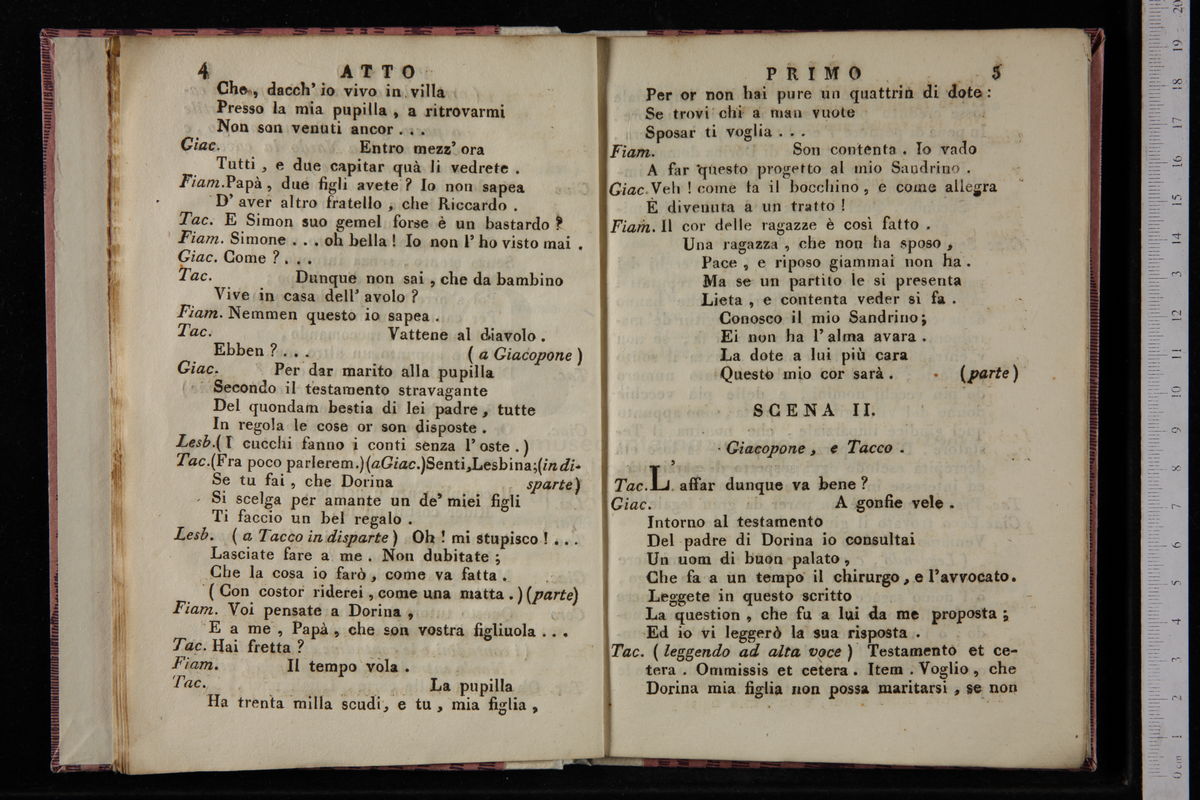 4 ATTO
Che, dacch' io vivo in villa
Presso la mia pupilla, a ritrovarmi
Non son venuti ancor...
Giac. Entro mezz' ora
Tutti, e due capitar quà li vedrete.
Fiam. Papà, due figli avete? Io non sapea
D' aver altro fratello, che Riccardo.
Tac. E Simon suo gemel forse è un bastardo?
Fiam. Simone... oh bella! Io non l' ho visto mai.
Giac. Come?...
Tac. Dunque non sai, che da bambino
Vive in casa dell' avolo?
Fiam. Nemmen questo io sapea.
Tac. Vattene al diavolo.
Ebben?... (a Giacopone)
Giac. Per dar marito alla pupilla
Secondo il testamento stravagante
Del quondam bestia di lei padre, tutte
In regola le cose or son disposte.
Lesb. (I cucchi fanno i conti senza l' oste.)
Tac. (Fra poco parlerem.) (a Giac.) Senti, Lesbina; (in di-
Se tu fai, che Dorina sparte)
Si scelga per amante un de' miei figli
Ti faccio un bel regalo.
Lesb. (a Tacco in disparte) Oh! mi stupisco!...
Lasciate fare a me. Non dubitate;
Che la cosa io farò, come va fatta.
(Con costor riderei, come una matta.) (parte)
Fiam. Voi pensate a Dorina,
E a me, Papà, che son vostra figliuola...
Tac. Hai fretta?
Fiam. Il tempo vola.
Tac. La pupilla
Ha trenta milla scudi, e tu, mia figlia,
PRIMO 5
Per or non hai pure un quattrin di dote:
Se trovi chi a man vuote
Sposar ti voglia...
Fiam. Son contenta. Io vado
A far questo progetto al mio Sandrino.
Giac. Veh! come fa il bocchino, e come allegra
È divenuta a un tratto!
Fiam. Il cor delle ragazze è così fatto.
Una ragazza, che non ha sposo,
Pace, e riposo giammai non ha.
Ma se un partito le si presenta
Lieta, e contenta veder si fa.
Conosco il mio Sandrino;
Ei non ha l' alma avara.
La dote a lui più cara
Questo mio cor sarà. (parte)
SCENA II.
Giacopone, e Tacco.
Tac. L' affar dunque va bene?
Giac. A gonfie vele.
Intorno al testamento
Del padre di Dorina io consultai
Un uom di buon palato,
Che fa a un tempo il chirurgo, e l'avvocato.
Leggete in questo scritto
La question, che fu a lui da me proposta;
Ed io vi leggerò la sua risposta.
Tac. (leggendo ad alta voce) Testamento et ce-
tera. Ommissis et cetera. Item. Voglio, che
Dorina mia figlia non possa maritarsi, se non